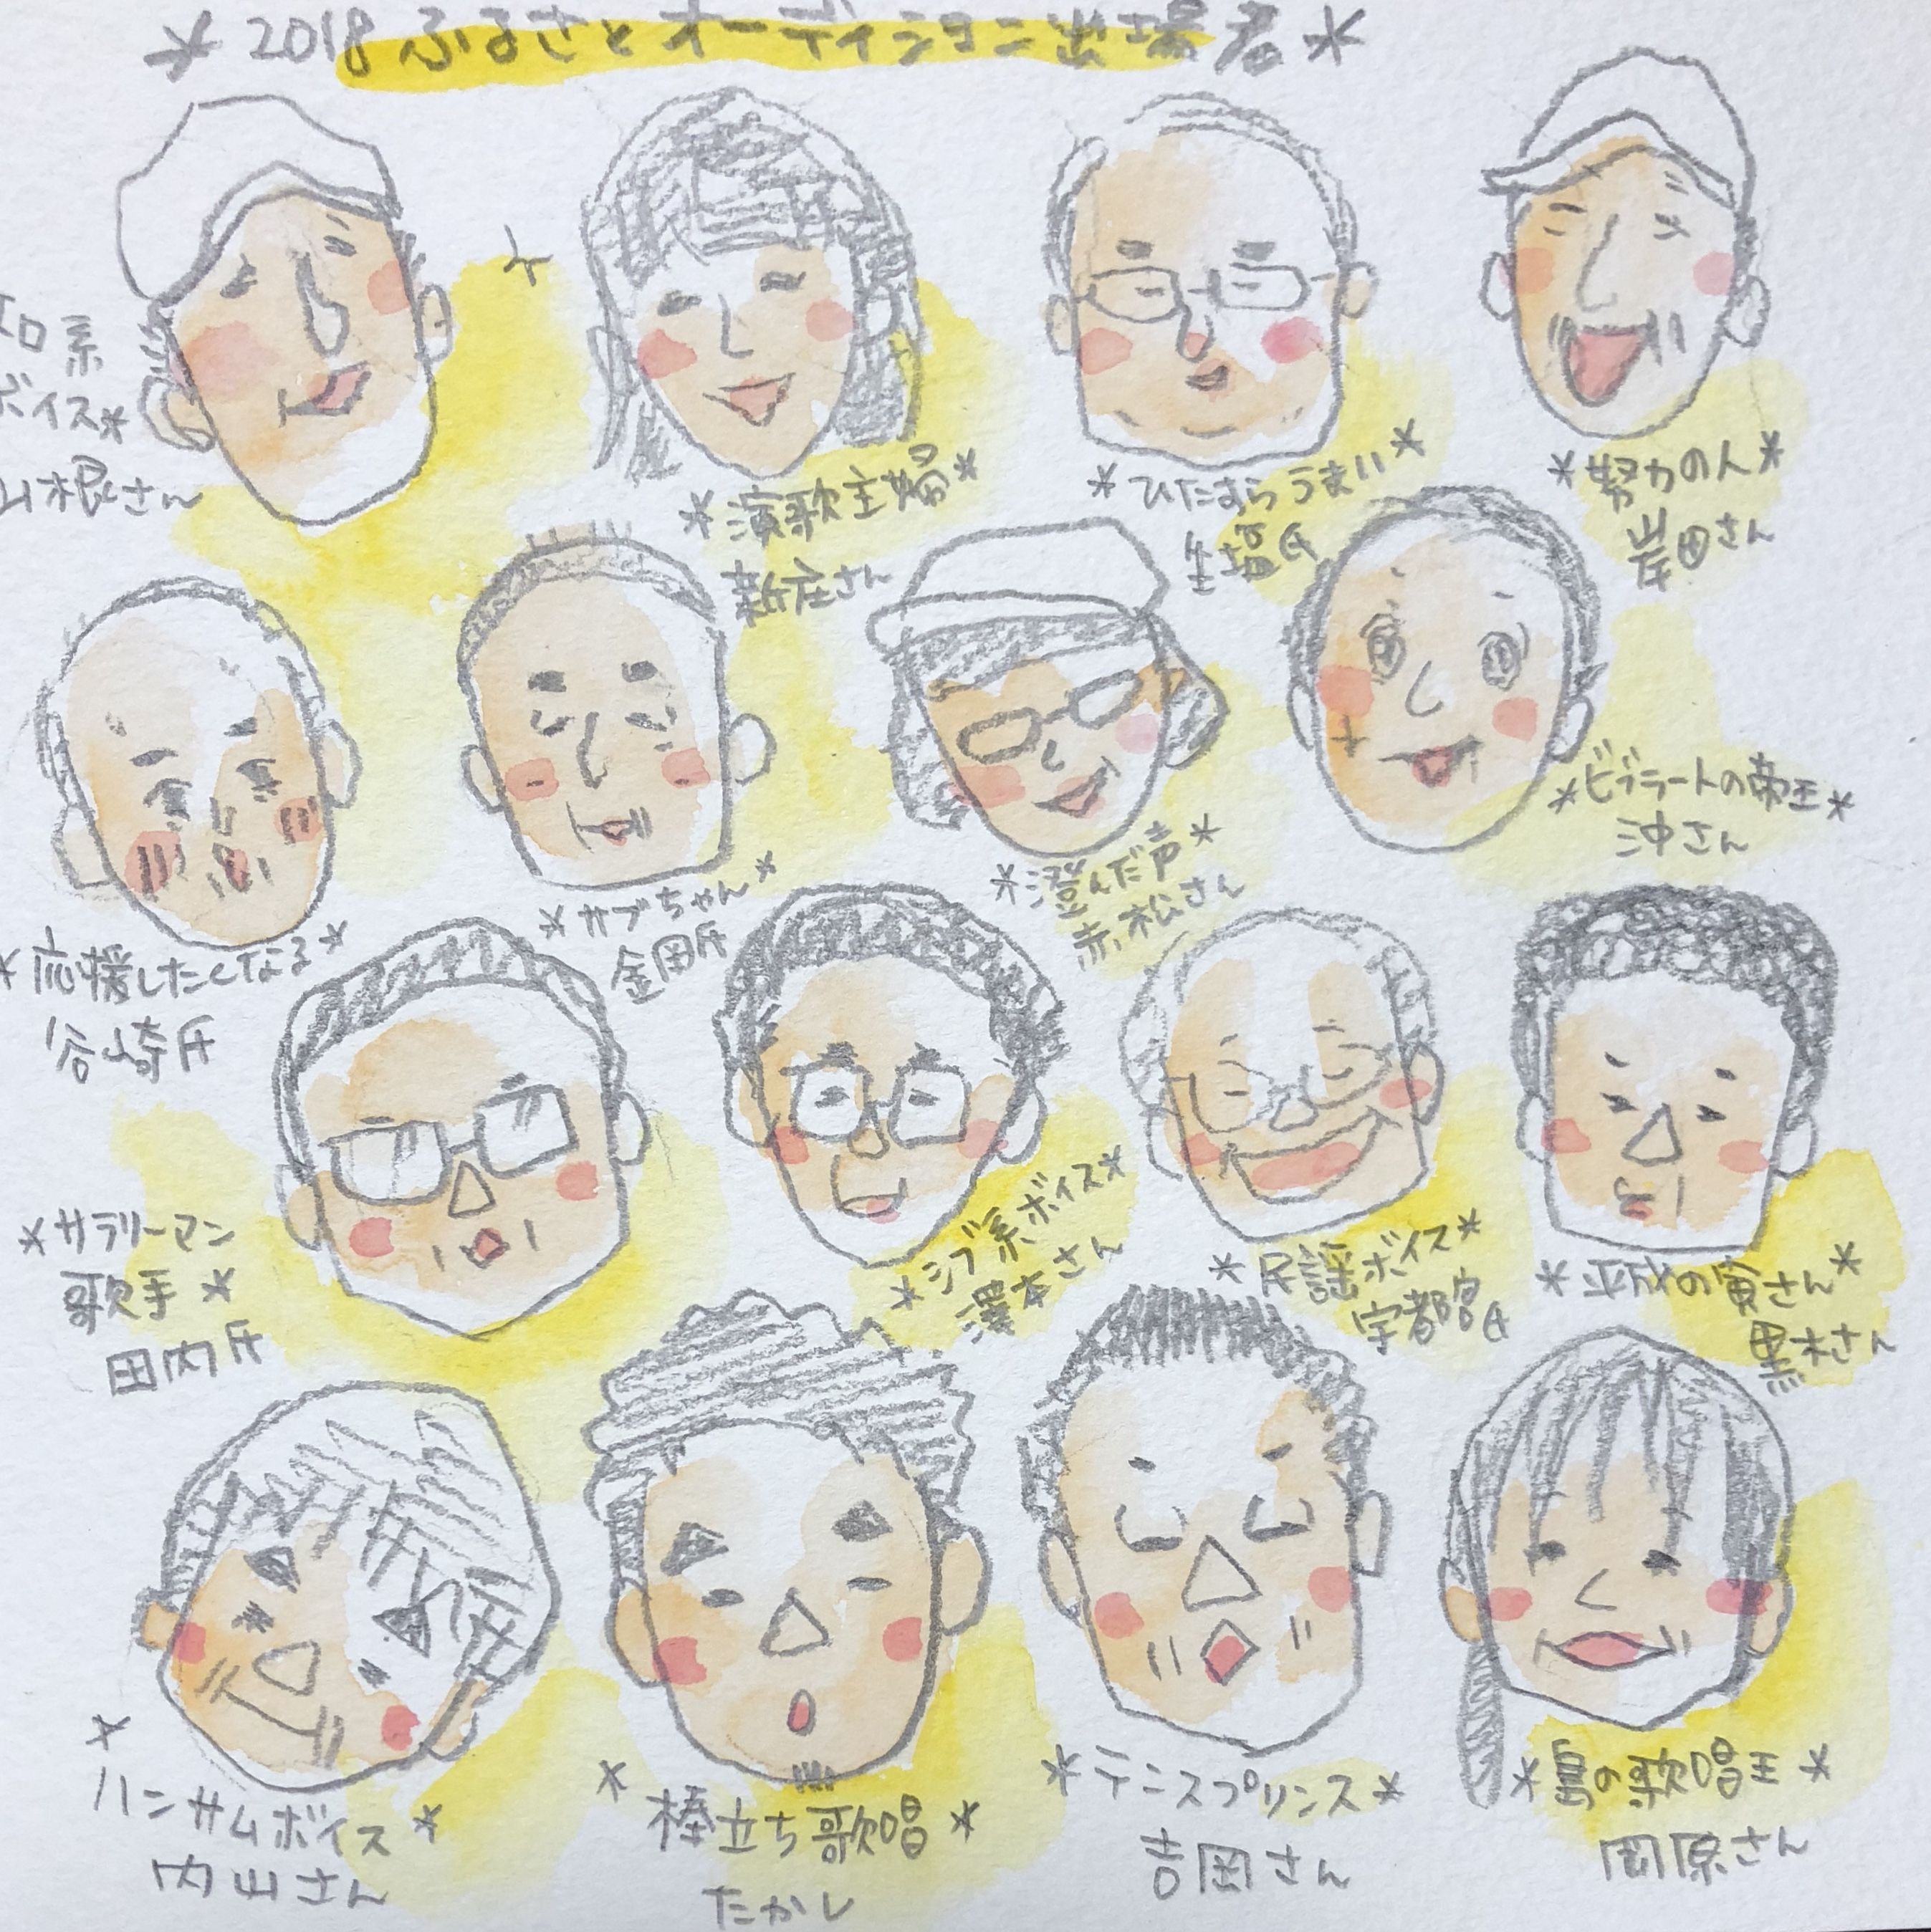 *2018 ふるさとオーディション出場者*
ボイス*
山根さん
*演歌主婦*
新庄さん
*ひたすらうまい*
生塩氏
*努力の人*
岸田さん
*応援したくなる*
谷崎氏
*サブちゃん*
金岡氏
*澄んだ声*
赤松さん
*ビブラートの帝王*
沖さん
*サラリーマン
歌手*
田内氏
*シブ系ボイス*
澤本さん
*民謡ボイス*
宇都宮氏
*平成の寅さん*
黒木さん
*ハンサムボイス*
内山さん
*棒立ち歌唱*
たかし
*テニスプリンス*
吉岡さん
*島の歌唱王*
岡原さん